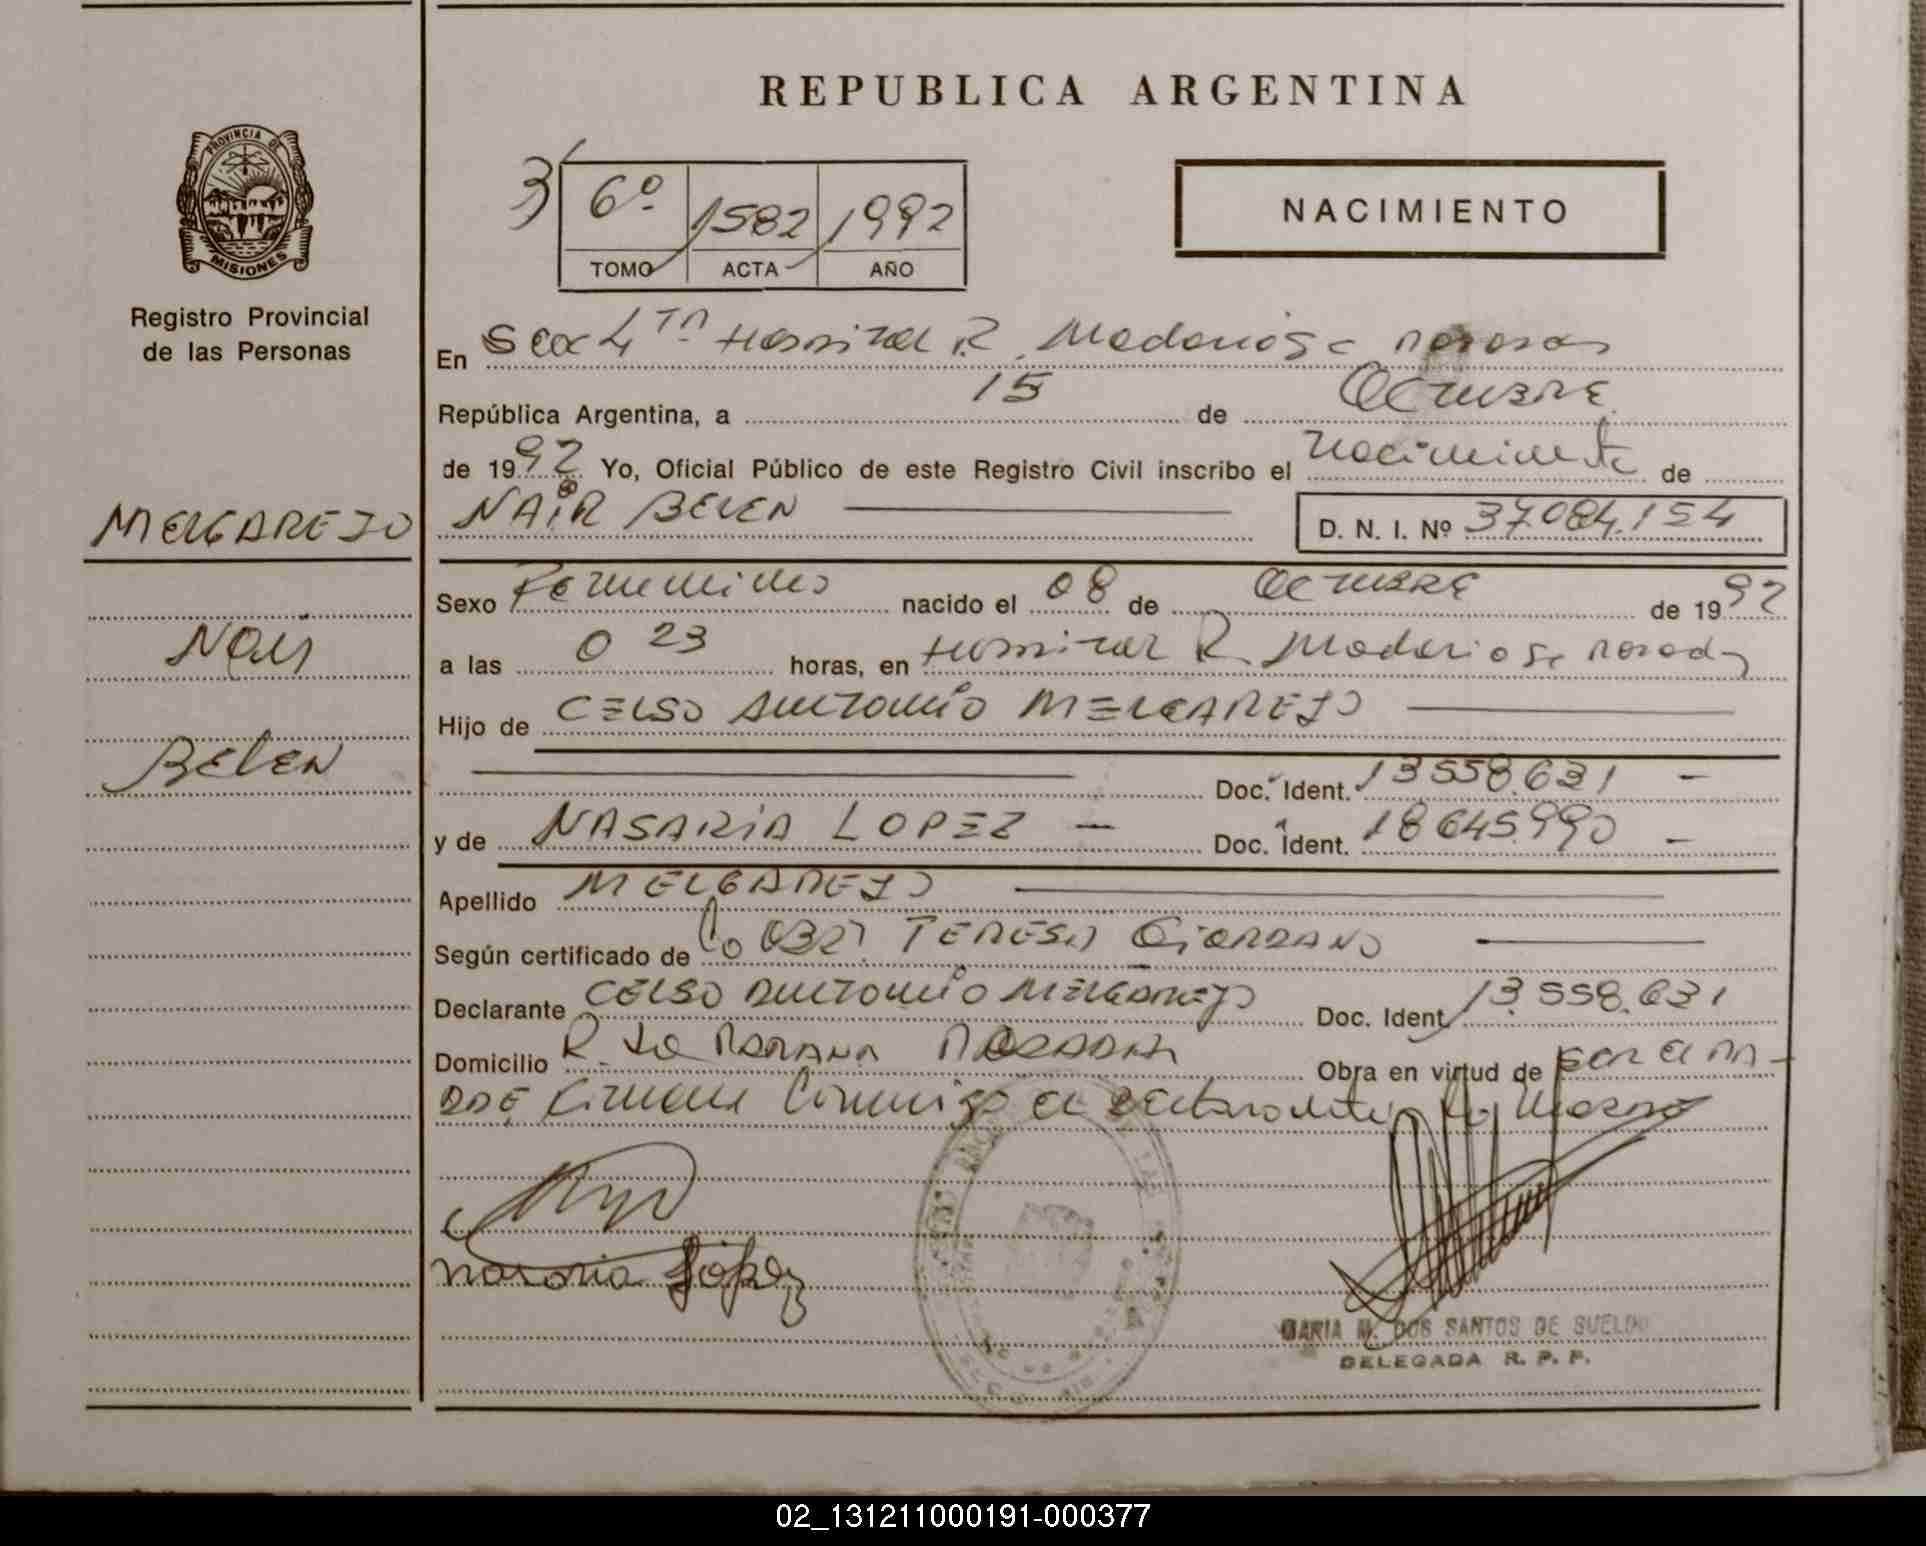 REPUBLICA ARGENTINA
PROVINCIA DE
MISIONES
Registro Provincial
de las Personas
3) 6º 1582 1992
TOMO ACTA AÑO
NACIMIENTO
En Secc 4ta Hospital R. Madariaga Posadas
República Argentina, a 15 de Octubre
de 1992 Yo, Oficial Público de este Registro Civil inscribo el nacimiento de
MELGAREJO
NAIR BELEN
D. N. I. Nº 37.084.154
Sexo Femenino nacido el 08 de Octubre de 1992
Nair
a las 0 23 horas, en Hospital R. Madariaga Posadas
Hijo de CELSO ANTONIO MELGAREJO
BELEN
Doc. Ident. 13558.631 -
y de NASARIA LOPEZ - Doc. Ident. 18645.990 -
Apellido MELGAREJO
Según certificado de TERESA GIORDANO
Declarante CELSO ANTONIO MELGAREJO Doc. Ident. 13.558.631
Domicilio PARANA POSADAS Obra en virtud de ser el pa-
dre firman conmigo el declarante y la
Nasaria López
MARIA M. DOS SANTOS DE SUELDO
DELEGADA R. P. P.
02_131211000191-000377